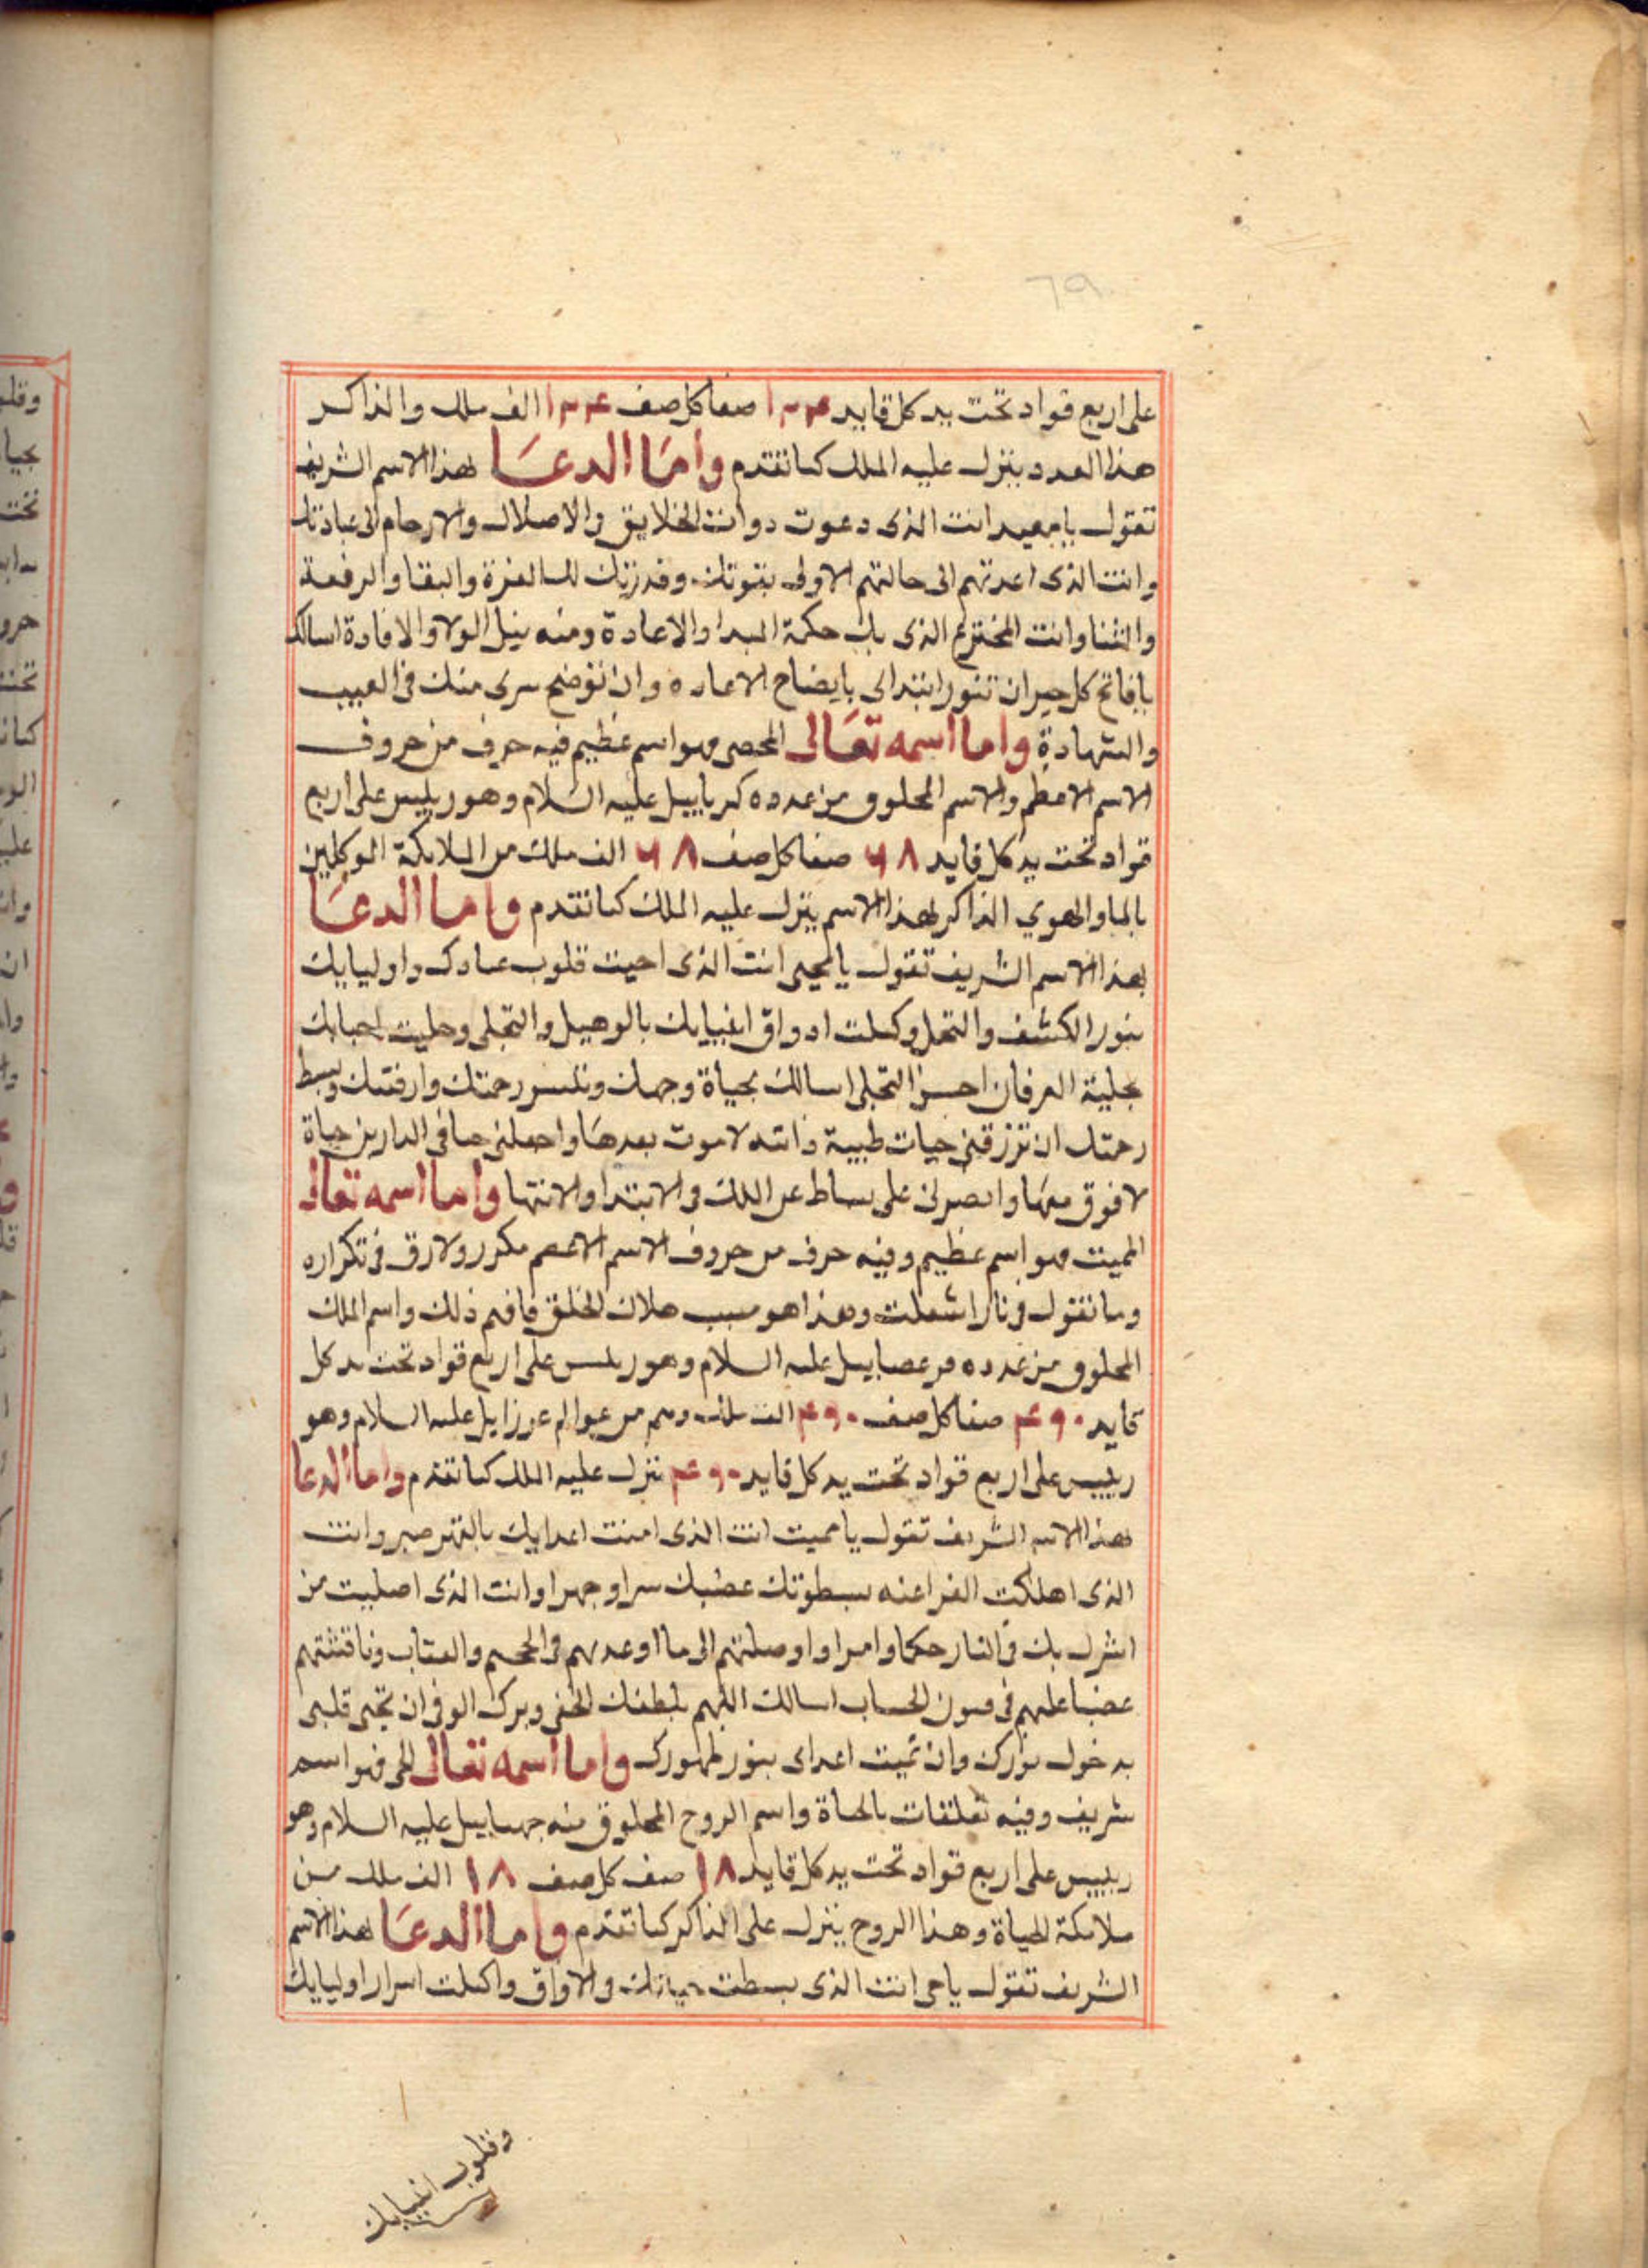 على اربع قواد تحت يد كل قايد ١٢٤ صفا كل صف ١٢٤ الف ملك والذاكر
هذا العدد ينزل عليه الملك كما تقدم واما الدعا لهذا الاسم الشريف
تقول يا معيد انت الذى دعوت ذوات الخلايق والاصلاب والارحام الى عبادتك
وانت الذى اعدتهم الى حالتهم الاولى بقوتك وقدرتك لك العزة والبقا والرفعة
والثنا وانت المخترع الذى بك حكمة المبدا والاعادة ومنه ينل الولا والافادة اسالك
يا فاتح كل ان تنور ابتداى بايضاح الاعاده وان توضح سرى منك فى الغيب
والشهادة واما اسمه تعالى المحصى فهو اسم عظيم فيه حرف من حروف
الاسم الاعظم والاسم المخلوق من عدده كرياييل عليه السلام وهو رييس على اربع
قواد تحت يد كل قايد ٦٨ صفا كل صف ٦٨ الف ملك من الملايكة الموكلين
والهوي الذاكر لهذا الاسم ينزل عليه الملك كما تقدم واما الدعا
بهذا الاسم الشريف تقول يا محيى انت الذى احيت قلوب عبادك واوليايك
بنور الكشف والتحلى وكملت اذواق انبيايك والتجلى وحليت احبابك
بحلية العرفان احسن التحلى اسالك بحياة وجهك رحمتك وبسط
رحمتك ان ترزقنى حيات طيبة ذاته لا موت بعدها واجعلنى حيا فى الدارين حياة
لا فوق معها وانصرنى على بساط الملك فى الابتدا والانتها واما اسمه تعالى
المميت فهو اسم عظيم وفيه حرف من حروف الاسم الاعظم مكرر فى تكراره
وما تقول فى نار اشعلت وهذا هو سبب هلاك الخلق فافهم ذلك واسم الملك
المخلوق من عدده عليه السلام وهو رييس على اربع قواد تحت يد كل
قايد ٤٩٠ صفا كل صف ٤٩٠ الف ملك وهم من عوالم عزراييل عليه السلام وهو
رييس على اربع قواد تحت يد كل قايد ٤٩٠ ينزل عليه الملك كما تقدم واما الدعا
بهذا الاسم الشريف تقول يا مميت انت الذى امت اعدايك بالقهر وانت
الذى اهلكت الفراعنه بسطوتك غضبك سرا وجهرا وانت الذى اصليت من
اشرك بك فى النار حكما وامرا واوصلتهم الى ما اوعدهم فى الجحيم والعتاب وناقشتهم
غضبا عليهم فى الحساب اسالك اللهم بلطفك الخفى وبرك الوفى ان تحيى قلبى
بدخول نوارك وان تميت اعداى بنور ظهورك واما اسمه تعالى الحى فهو اسم
شريف وفيه تعلقات بالحياة واسم الروح المخلوق منه عليه السلام وهو
رييس على اربع قواد تحت يد كل قايد ١٨ صف كل صف ١٨ الف ملك من
ملايكة الحياة وهذا الروح ينزل على الذاكر كما تقدم واما الدعا لهذا الاسم
الشريف تقول يا حى انت الذى بسطت حياتك واكملت اسرار اوليايك
وقلوب انبيايك